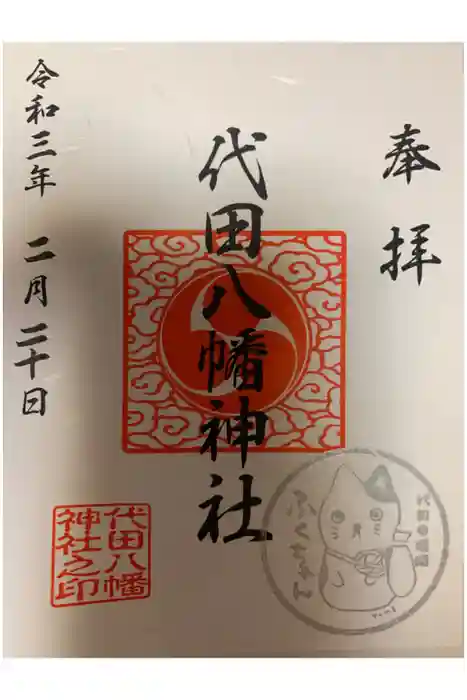 奉拝
代田八幡神社
令和三年 二月二十日
代田八幡
神社之印
ふくちゃん